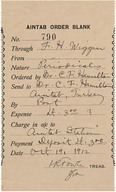 AINTAB ORDER BLANK
No. 790
Through F. H. Wiggin
From
Nature Periodicals
Ordered by Dr. C. F. Hamilton
Send to Dr. C. F. Hamilton
Aintab, Turkey
By Post
Expense
Charge in a/c to
Aintab Station
Payment Deposit
Date Oct. 19, 191
TREAS.